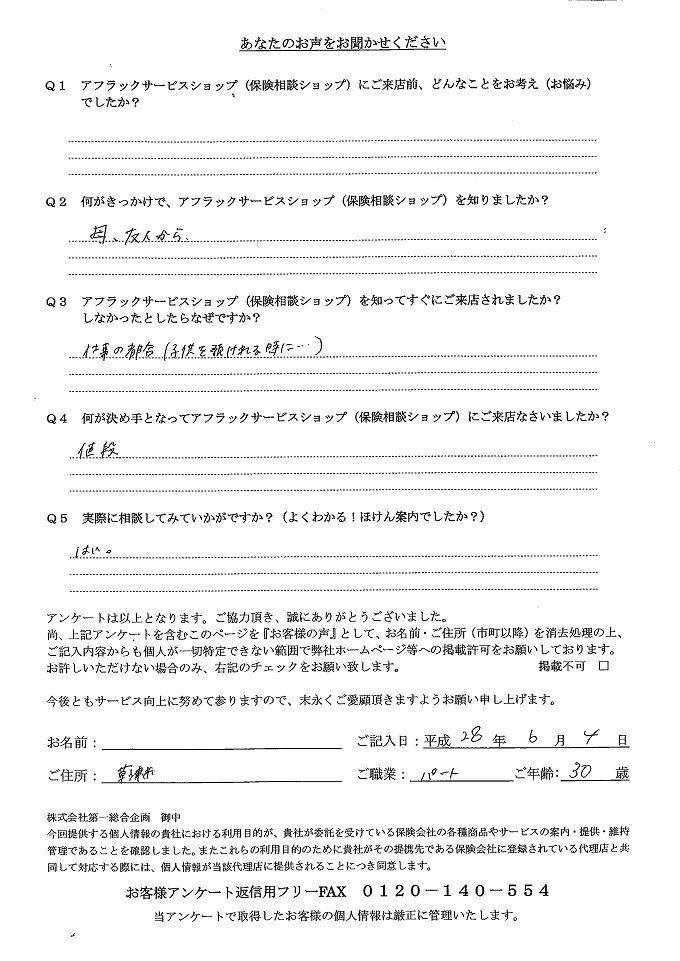 あなたのお声をお聞かせください
Q1 アフラックサービスショップ(保険相談ショップ)にご来店前、どんなことをお考え(お悩み)
でしたか?
Q2 何がきっかけで、アフラックサービスショップ(保険相談ショップ)を知りましたか?
母、友人から.
Q3 アフラックサービスショップ(保険相談ショップ)を知ってすぐにご来店されましたか?
しなかったとしたらなぜですか?
仕事の都合(子供を預けれる時に…)
Q4 何が決め手となってアフラックサービスショップ(保険相談ショップ)にご来店なさいましたか?
値段
Q5 実際に相談してみていかがですか?(よくわかる!ほけん案内でしたか?)
はい。
アンケートは以上となります。ご協力頂き、誠にありがとうございました。
尚、上記アンケートを含むこのページを『お客様の声』として、お名前・ご住所(市町以降)を消去処理の上、
ご記入内容からも個人が一切特定できない範囲で弊社ホームページ等への掲載許可をお願いしております。
お許しいただけない場合のみ、右記のチェックをお願い致します。 掲載不可 □
今後ともサービス向上に努めて参りますので、末永くご愛顧頂きますようお願い申し上げます。
お名前: ご記入日:平成 28 年 6 月 4 日
ご住所: 草津市 ご職業: パート ご年齢: 30 歳
株式会社第一総合企画 御中
今回提供する個人情報の貴社における利用目的が、貴社が委託を受けている保険会社の各種商品やサービスの案内・提供・維持
管理であることを確認しました。またこれらの利用目的のために貴社がその提携先である保険会社に登録されている代理店と共
同して対応する際には、個人情報が当該代理店に提供されることにつき同意します。
お客様アンケート返信用フリーFAX 0120-140-554
当アンケートで取得したお客様の個人情報は厳正に管理いたします。